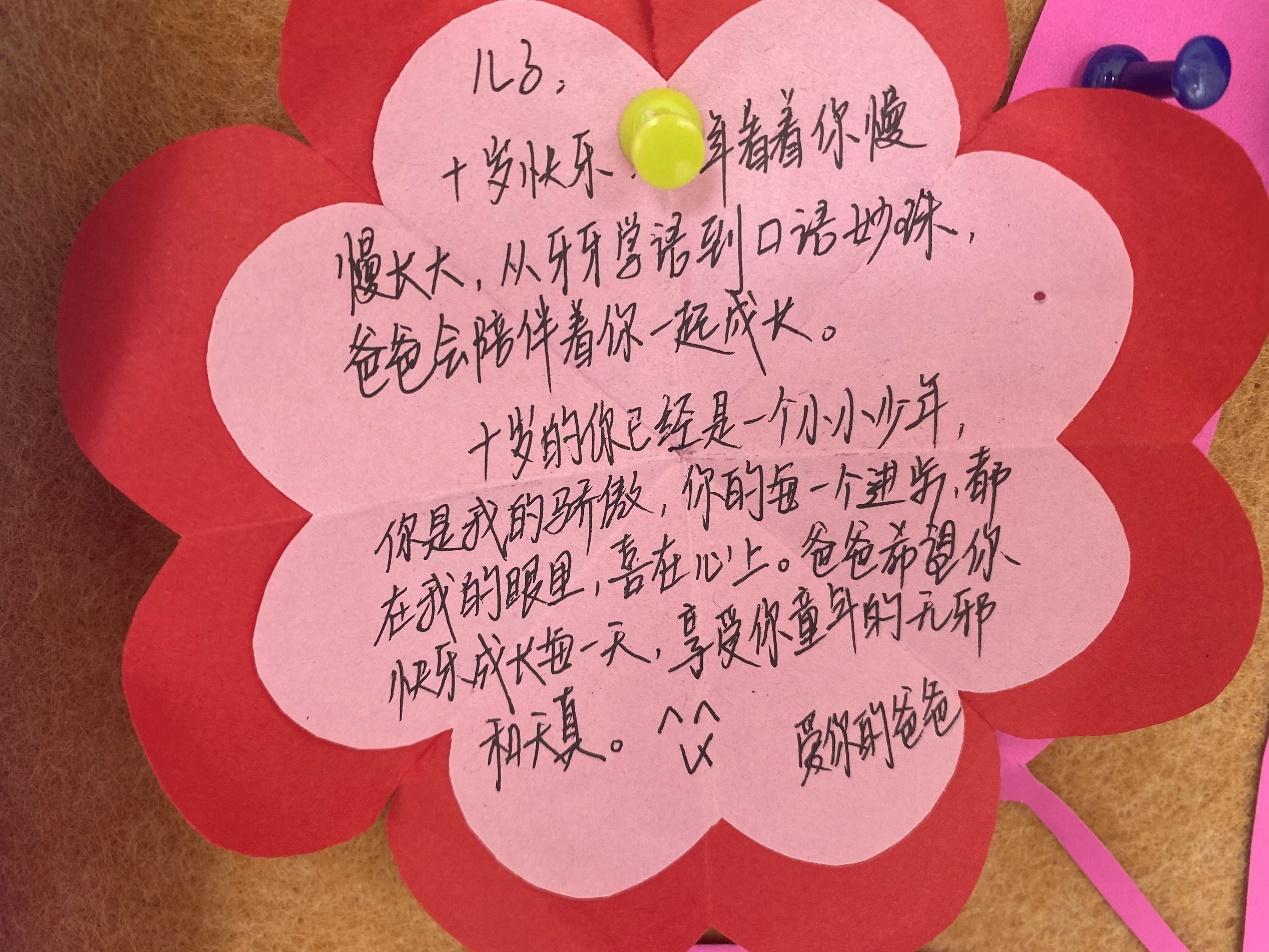 儿子，
十岁快乐. 年看着你慢
慢长大，从牙牙学语到口语妙珠，
爸爸会陪伴着你一起成长。
十岁的你已经是一个小小少年，
你是我的骄傲，你的每一个进步，都
在我的眼里，喜在心上。爸爸希望你
快乐成长每一天，享受你童年的无邪
和天真。^^
爱你的爸爸